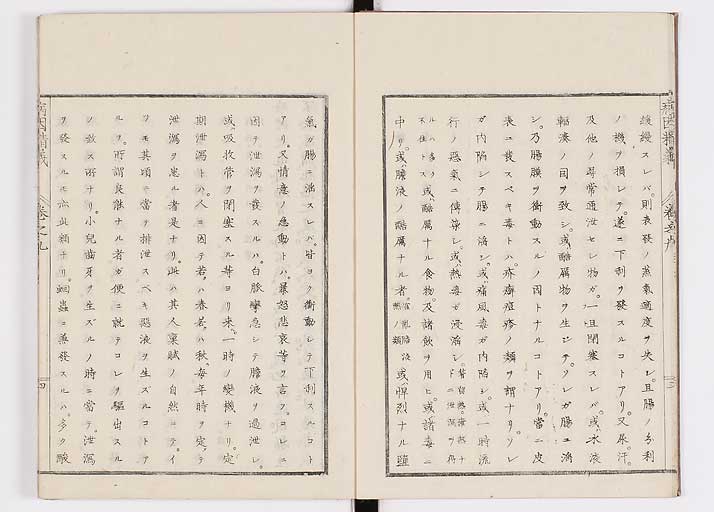 緩縵スレバ則表發ノ蒸氣適度ヲ失シ且腸ノ分利
ノ機ヲ損レテ遂ニ下利ヲ發スルコトアリ又尿汗
及他ノ尋常通泄セル物ガ一旦閉塞スレバ或水液
輻湊ノ因ヲ致シ或酷厲物ヲ生ジテソレガ腸ニ滴
シ乃腸膜ヲ衝動スルノ因トナルコトアリ當ニ皮
表ニ發スベキ毒トハ疥癬痘疹ノ類ヲ謂ナリソレ
ガ内陷シテ腸ニ滴シ或痛風毒ガ内陷シ或一時流
行ノ惡氣ニ傳染シ或熱毒ガ浸淫シ
ルハ多ク或酷厲ナル食物及諸飲ヲ用ヒ或諸毒ニ
中リ或膽液ノ酷厲ナル者 或悍烈ナル鹽
氣ガ腸ニ注スレバ皆ヨク衝動シテ下利スルコト
アリ又情意ノ感動トハ暴怒悲哀等ヲ言フコレニ
因テ泄瀉ヲ發スルハ白脉攣急シテ膽液ヲ過泄シ
或吸收管ヲ閉塞スル等ヨリ來一時ノ變機ナリ定
期泄瀉トハ人ニ因テ若ハ春若ハ秋毎年時ヲ定テ
泄瀉ヲ患ル者是ナリ此ハ其人稟賦ノ自然ニテイ
ツモ其頃ニ當テ排泄スベキ惡液ヲ生ズルコトア
ルヲ所謂良能ナル者ガ便ニ就テコレヲ驅出スル
ノ致ス所ナリ小兒齒牙ヲ生ズルノ時ニ當テ泄瀉
ヲ發スルモ亦此類ナリ蛔蟲ニ兼發スルハ多ク酸